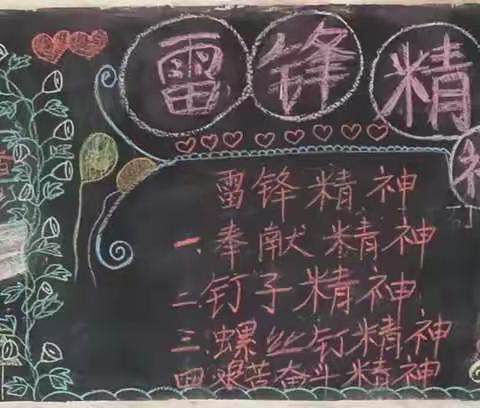 雷锋精神
雷锋精神
一.奉献精神
二钉子精神
三.螺丝钉精神
四艰苦奋斗精神